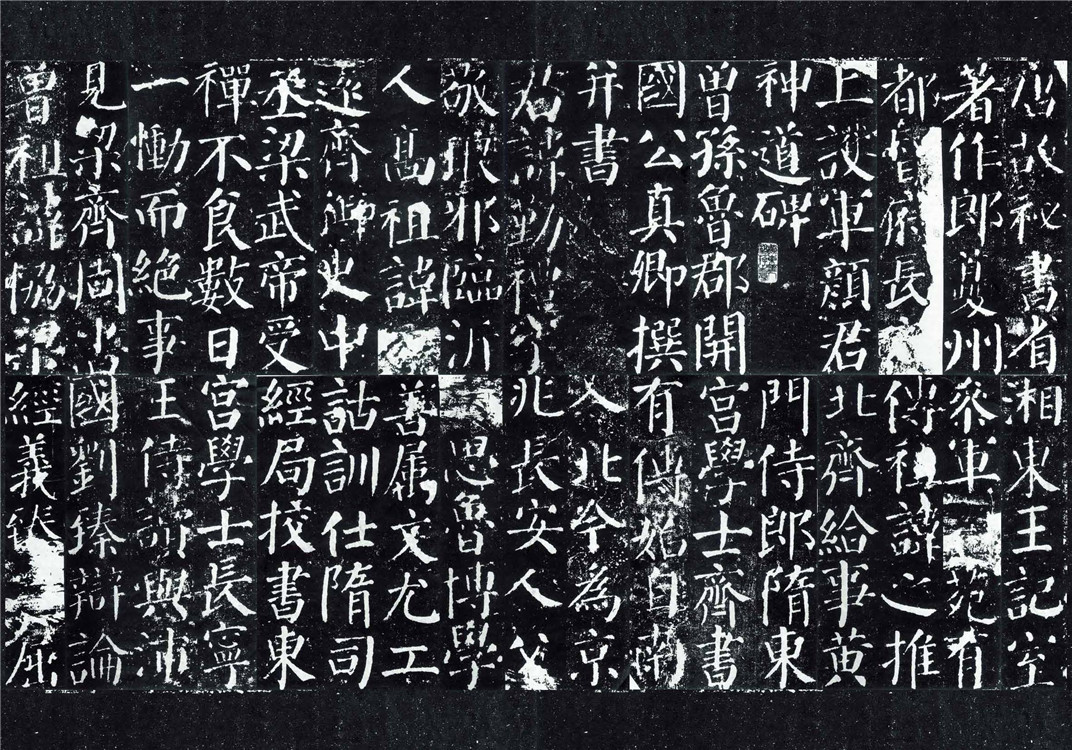 唐故秘書省
著作郎夔州
都督府長
上護軍顏君
神道碑
曾孫魯郡開
國公真卿撰
并書
君諱勤禮字
敬琅邪臨沂
人高祖諱
遠齊御史中
丞梁武帝受
禪不食數日
一慟而絕事
見梁齊周書
曾祖諱協梁
湘東王記室
參軍苑有
傳祖諱之推
北齊給事黃
門侍郎隋東
宮學士齊書
有傳始自南
入北今為京
兆長安人父
思魯博學
善屬文尤工
詁訓仕隋司
經局挍書東
宮學士長寧
王侍讀與沛
國劉臻辯論
經義臻屈